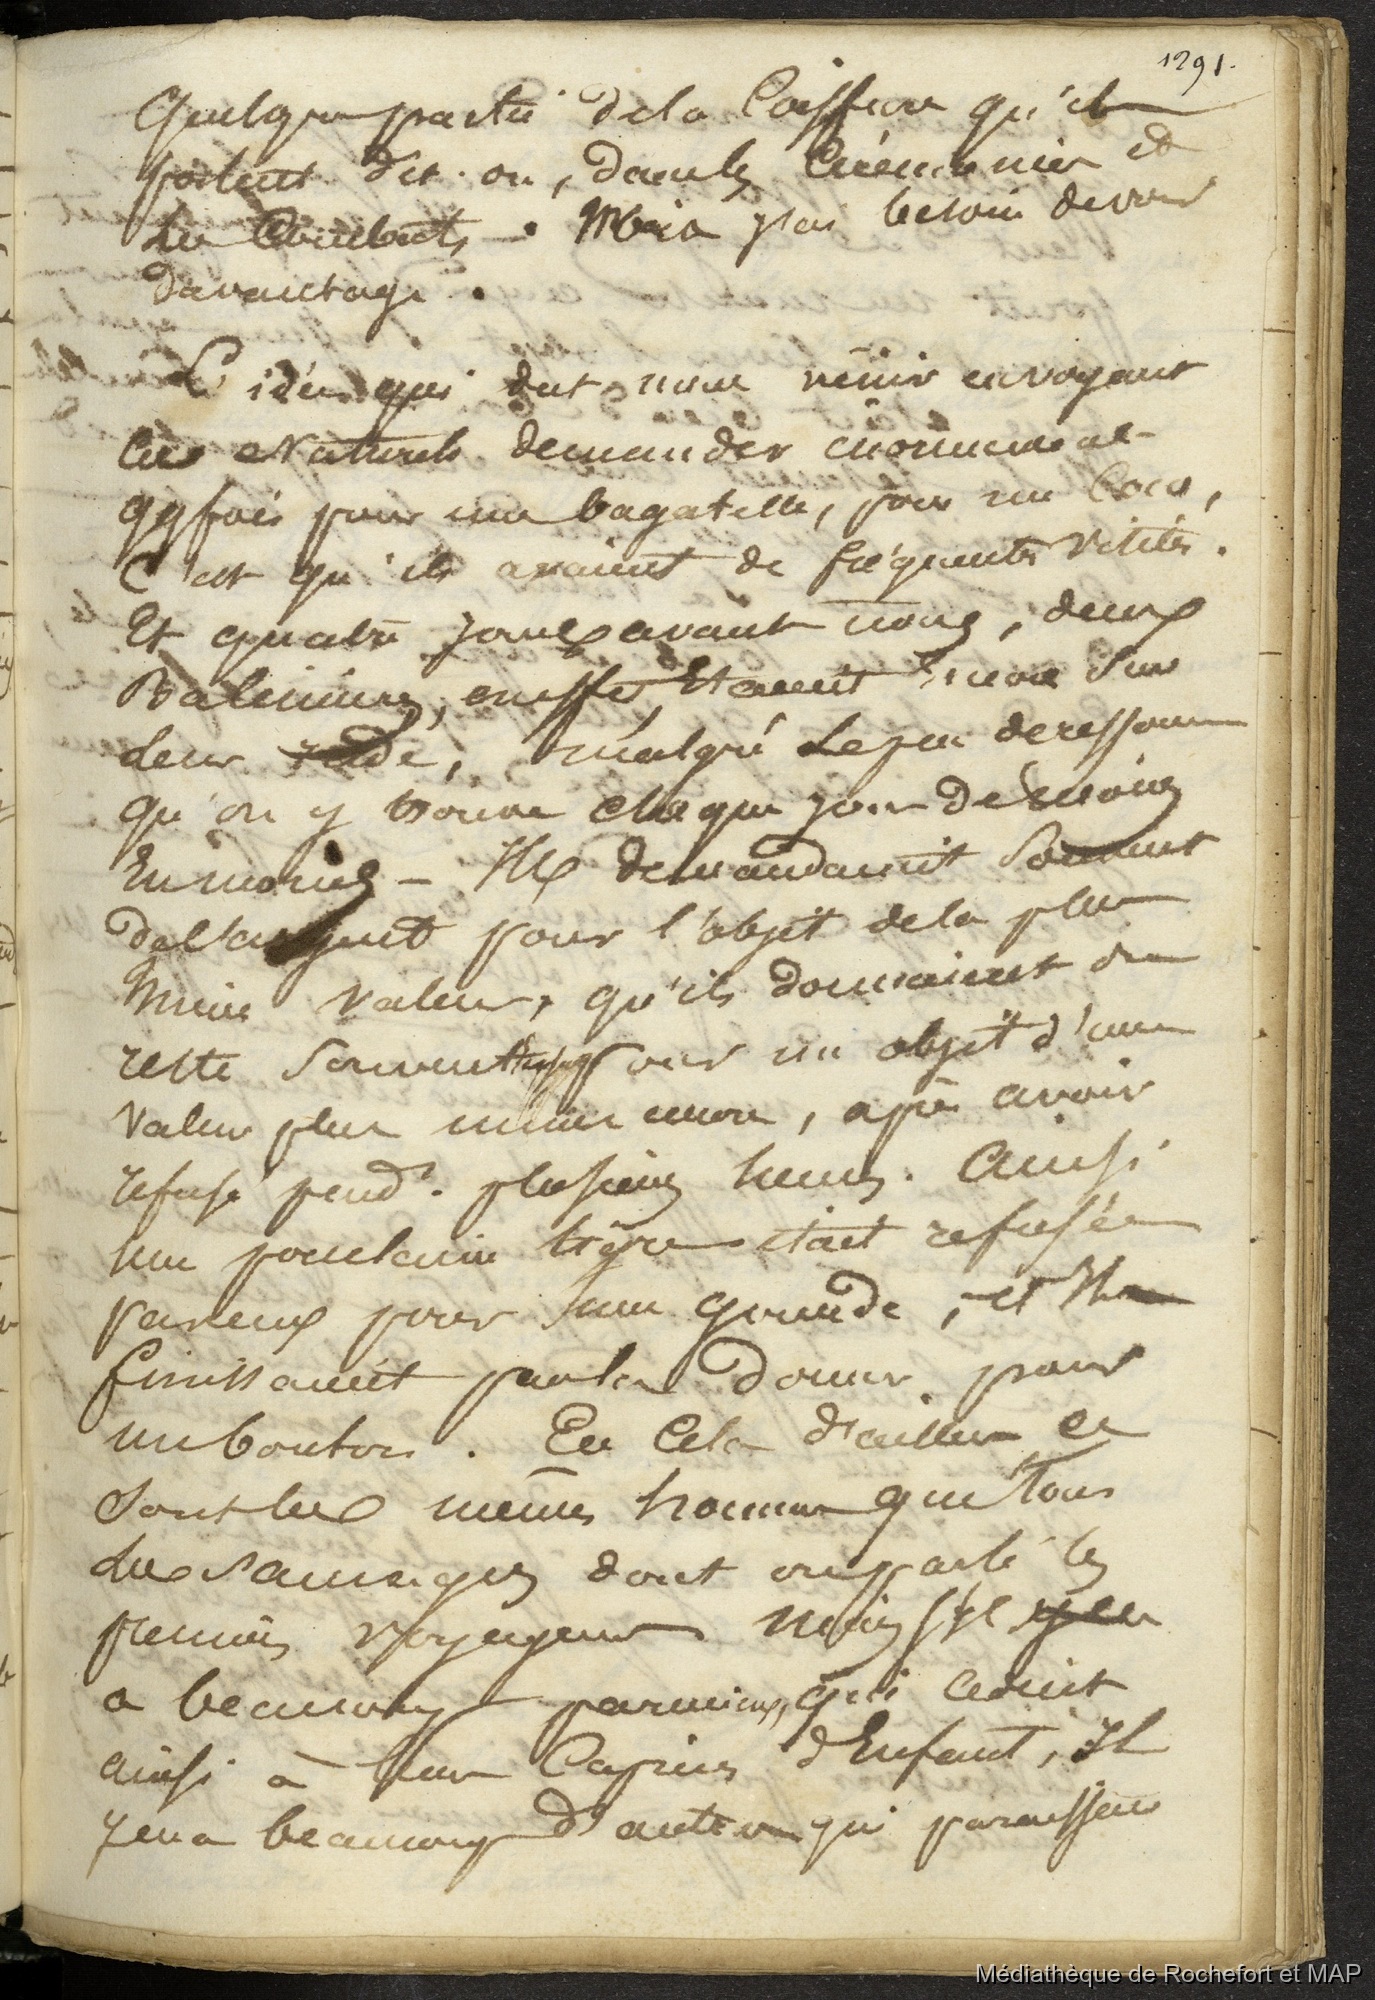 1291.
Quelque partie de la Coiffure qu'ils
portent dit-on, dans les Cérémonies et
les Combats. Mais j'ai besoin de voir
davantage.
L'idée qui dut nous venir en voyant
ces Naturels demander énormement
qqfois pour une bagatelle, pour un Coco,
C'est qu'ils avaient de fréquentes visites.
Et quatre jours avant nous, deux
Baleiniers, en effet, Etaient Encore sur
leur rade, malgré le peu de ressources
qu'on y trouve chaque jour de moins
En moins - Ils demandaient souvent
de l'argent pour l'objet de la plus
mince valeur, qu'ils donnaient du
reste souvent pour un objet d'une
valeur plus mince encore, après avoir
refusé pendt. plusieurs heures. Ainsi
une porcelaine tigre était refusée
par eux pour une gourde, et Ils
finissaient par la donner pour
un bouton. En Cela d'ailleurs ce
sont les mêmes hommes que tous
les sauvages dont on parlé les
premiers voyageurs mais s'il y en
a beaucoup parmi eux, qui cèdent
ainsi à leurs Caprices d'Enfant, Il
y en a beaucoup d'autres qui paraissent
Médiathèque de Rochefort et MAP